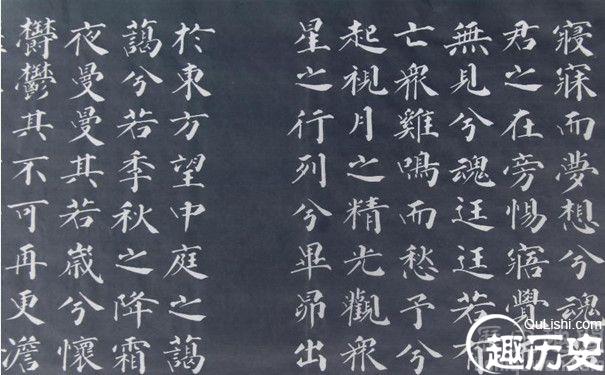 寢寐而夢想兮魂
君之在旁惕寤覺
無見兮魂迋迋若
亡衆雞鳴而愁予兮
起視月之精光觀衆
星之行列兮畢昴出
於東方望中庭之藹
藹兮若季秋之降霜
夜曼曼其若歲兮懷
鬱鬱其不可再更澹
QuLishi.com
趣历史